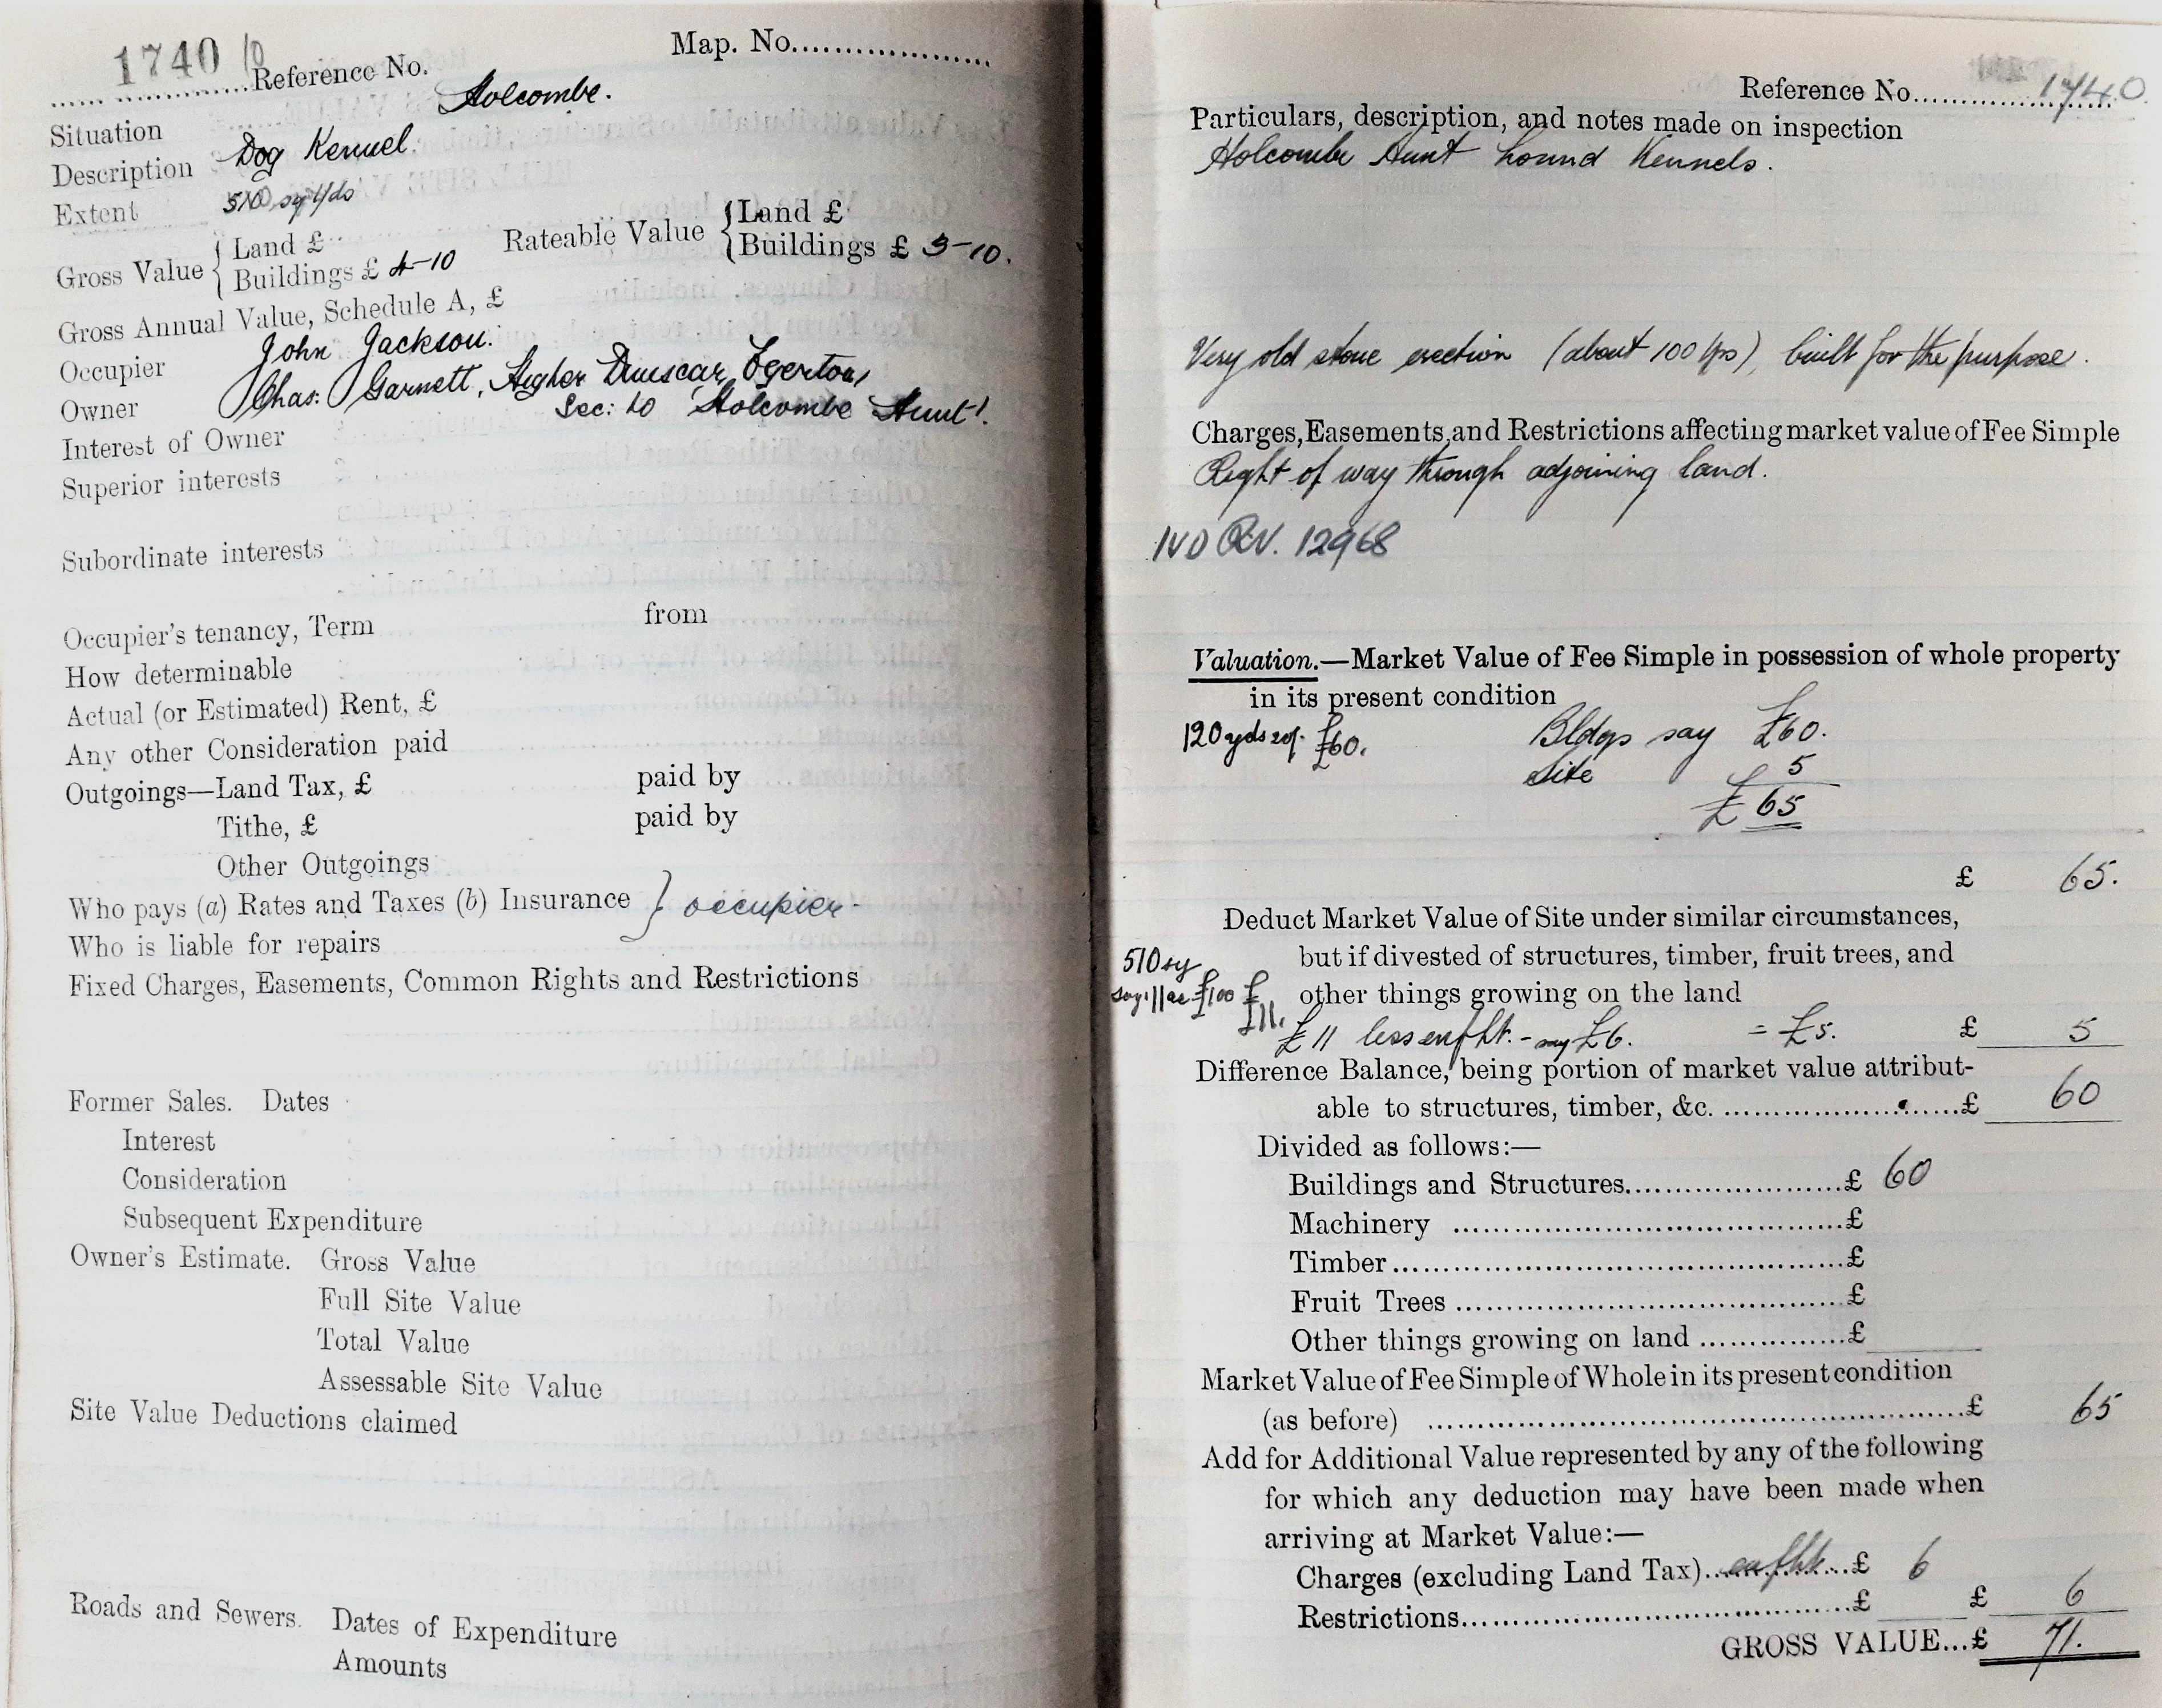 1740
Map. No.
Reference No.
Situation Holcombe.
Description Dog Kennel.
Extent 510 sq yds
Gross Value { Land £
Buildings £ 4-10
Rateable Value { Land £
Buildings £ 3-10.
Gross Annual Value, Schedule A, £
Occupier John Jackson.
Owner Chas: Garnett, Higher Dunscar, Egerton,
Sec: to Holcombe Hunt.
Interest of Owner
Superior interests
Subordinate interests
Occupier's tenancy, Term from
How determinable
Actual (or Estimated) Rent, £
Any other Consideration paid
Outgoings—Land Tax, £ paid by
Tithe, £ paid by
Other Outgoings
Who pays (a) Rates and Taxes (b) Insurance } occupier-
Who is liable for repairs
Fixed Charges, Easements, Common Rights and Restrictions
Former Sales. Dates
Interest
Consideration
Subsequent Expenditure
Owner's Estimate. Gross Value
Full Site Value
Total Value
Assessable Site Value
Site Value Deductions claimed
Roads and Sewers. Dates of Expenditure
Amounts
Reference No. 1740.
Particulars, description, and notes made on inspection
Holcombe Hunt hound Kennels.
Very old stone erection (about 100 yrs), built for the purpose.
Charges, Easements, and Restrictions affecting market value of Fee Simple
Right of way through adjoining land.
IVD 12968
Valuation.—Market Value of Fee Simple in possession of whole property
in its present condition
120 yds £60. Bldgs say £60.
Site 5
£65
£ 65.
Deduct Market Value of Site under similar circumstances,
but if divested of structures, timber, fruit trees, and
other things growing on the land
510 sy
say .11 ac £100 £
£11.
£11 less - say £6. = £5. £ 5
Difference Balance, being portion of market value attribut-
able to structures, timber, &c. £ 60
Divided as follows:—
Buildings and Structures £ 60
Machinery £
Timber £
Fruit Trees £
Other things growing on land £
Market Value of Fee Simple of Whole in its present condition
(as before) £ 65
Add for Additional Value represented by any of the following
for which any deduction may have been made when
arriving at Market Value:—
Charges (excluding Land Tax) £ 6
Restrictions £ £ 6
GROSS VALUE...£ 71.